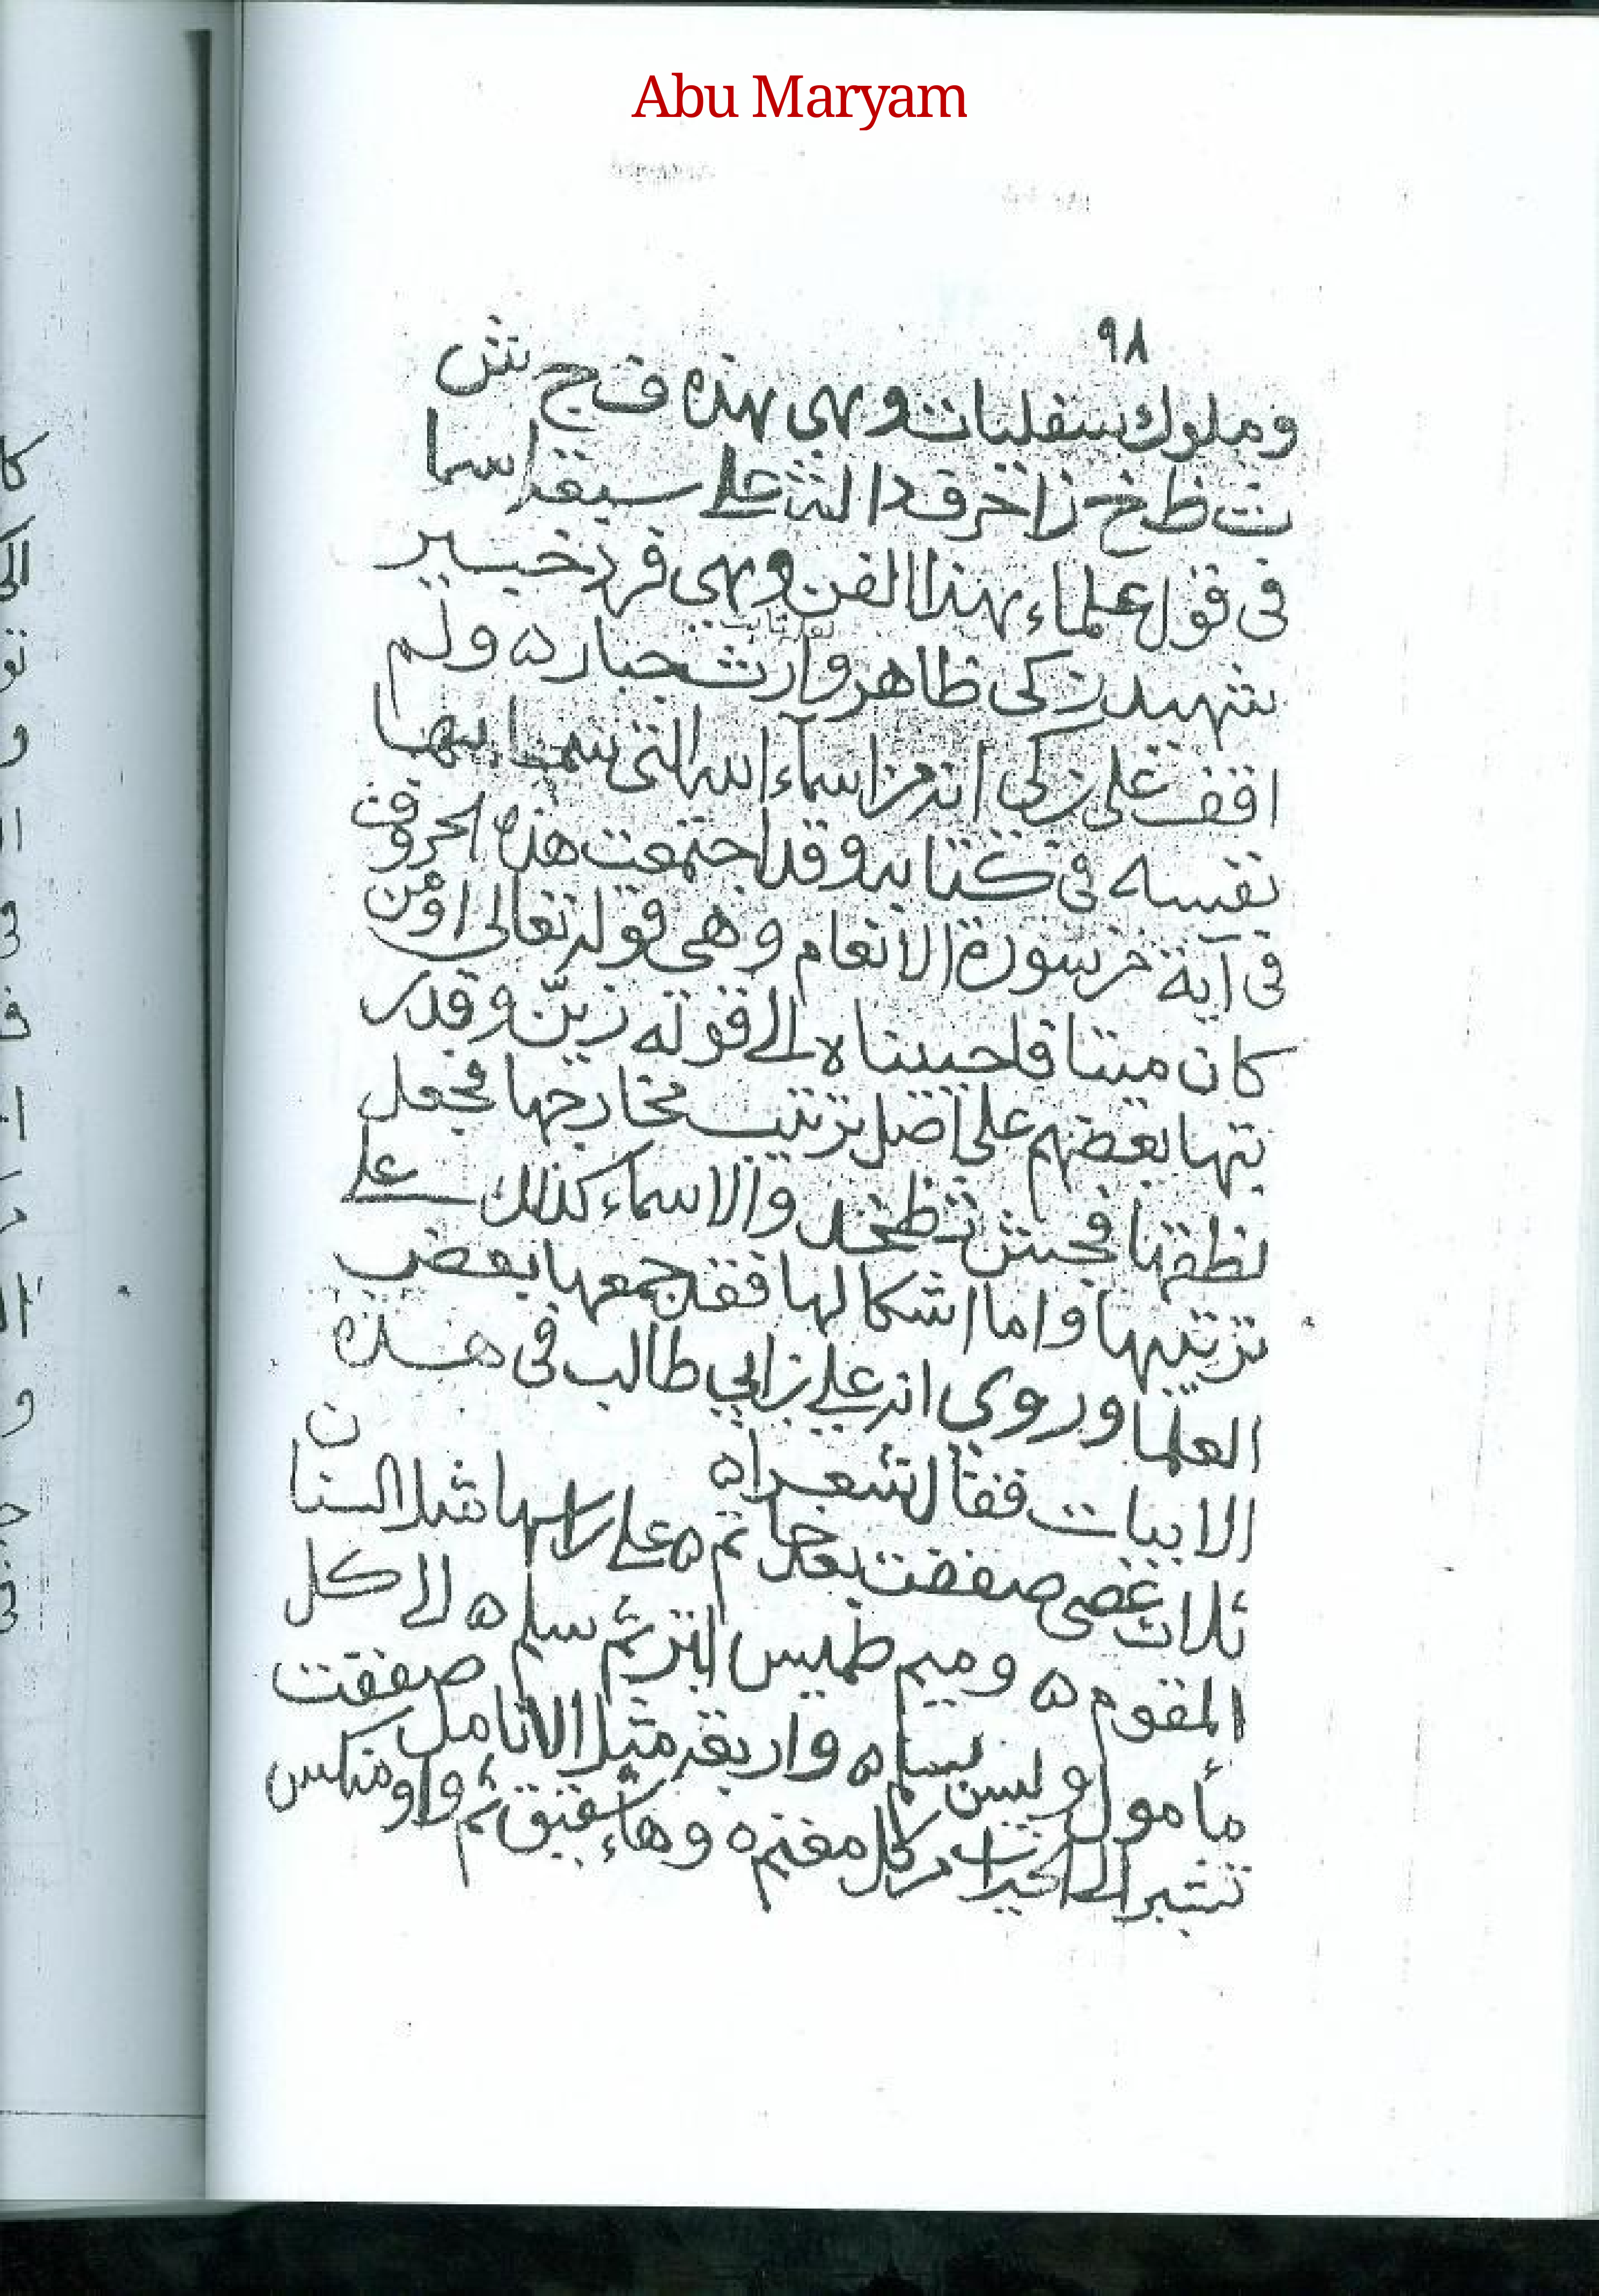 Abu Maryam
٩٨
وملوك سفليات وهى هذه ف ج ش
ث ظ خ ز اخرف دالة على سبعة اسما
فى قول علماء هذا الفن وهى فرد خبير
شهيد زكى ظاهر وارث جبار ه ولم
اقف على زكى انه من اسمآء الله التى سما بها
نفسه فى كتابه وقد اجتمعت هذه الحروف
فى آية من سورة الانعام وهى قوله تعالى اومن
كان ميتا فاحييناه الى قوله زيّن وقدر
تبها بعضهم على اصل ترتيب مخارجها فجعل
نطقها فجش ثظخد والاسماء كذلك على
ترتيبها واما اشكالها فقد جمعها بعض
العلما وروى انه على بن ابي طالب فى هذه
الابيات فقال شعراه
ثلاث عصى صففت بعد خاتم ه على راسها مثل السنان
المقوم ه وميم طميس ابتر ثم سلم ه الى كل
مأمول وليس بسلم ه واربعة مثل الانامل صففت
تشير الى الخيرات من كل مغنم ه وهاء شقيق ثم واو منكس